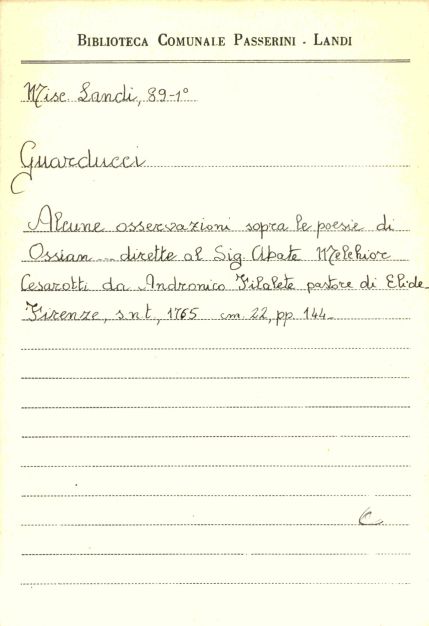 BIBLIOTECA COMUNALE PASSERINI - LANDI
Misc. Landi, 89-1°
Guarducci
Alcune osservazioni sopra le poesie di
Ossian ... dirette al Sig. Abate Melchior
Cesarotti da Andronico Filalete pastore di Elide.
Firenze, s.n.t., 1765 cm. 22, pp. 144.
C